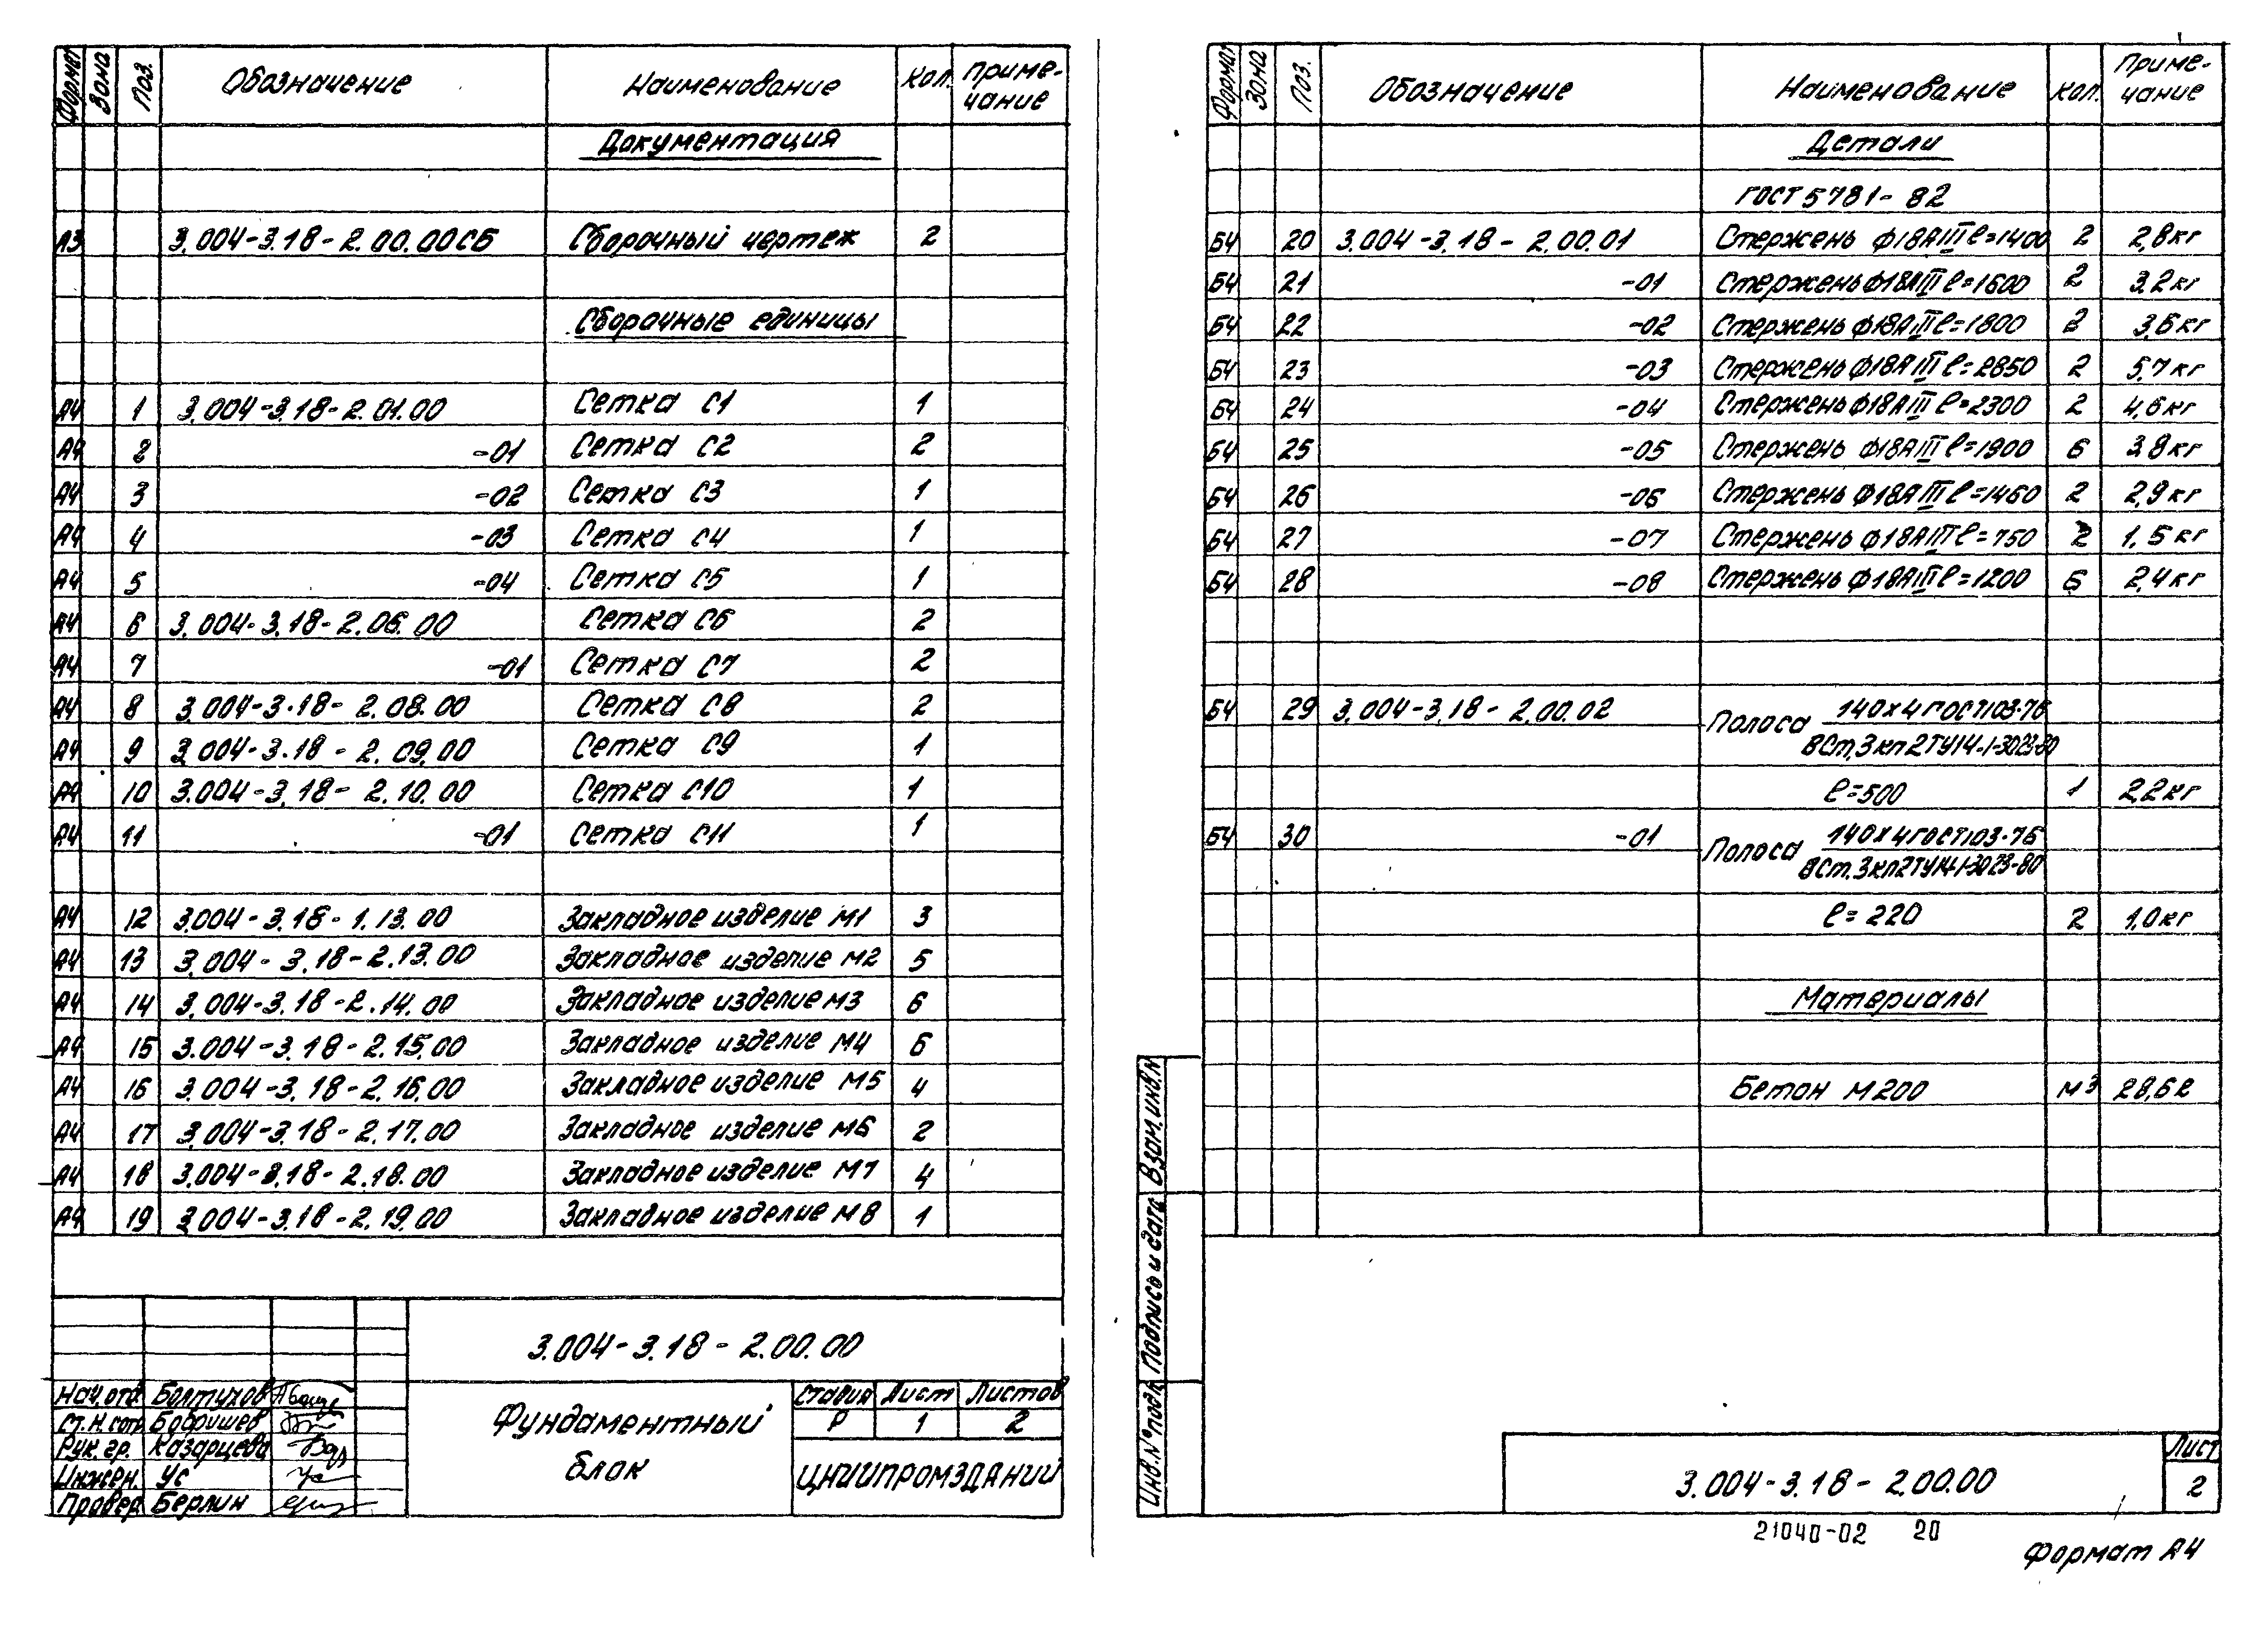 Формат Зона Поз. Обозначение Наименование Кол. Приме-
чание
Документация
А3 3.004-3.18-2.00.00СБ Сборочный чертеж 2
Сборочные единицы
А4 1 3.004-3.18-2.01.00 Сетка С1 1
А4 2 -01 Сетка С2 2
А4 3 -02 Сетка С3 1
А4 4 -03 Сетка С4 1
А4 5 -04 Сетка С5 1
А4 6 3.004-3.18-2.06.00 Сетка С6 2
А4 7 -01 Сетка С7 2
А4 8 3.004-3.18-2.08.00 Сетка С8 2
А4 9 3.004-3.18-2.09.00 Сетка С9 1
А4 10 3.004-3.18-2.10.00 Сетка С10 1
А4 11 -01 Сетка С11 1
А4 12 3.004-3.18-1.13.00 Закладное изделие М1 3
А4 13 3.004-3.18-2.13.00 Закладное изделие М2 5
А4 14 3.004-3.18-2.14.00 Закладное изделие М3 6
А4 15 3.004-3.18-2.15.00 Закладное изделие М4 6
А4 16 3.004-3.18-2.16.00 Закладное изделие М5 4
А4 17 3.004-3.18-2.17.00 Закладное изделие М6 2
А4 18 3.004-3.18-2.18.00 Закладное изделие М7 4
А4 19 3.004-3.18-2.19.00 Закладное изделие М8 1
3.004-3.18-2.00.00
Нач.отд. Болтухов
Ст.н.сотр. Бобришев
Рук.гр. Казарцева
Инжен. Ус
Провер. Берлин
Фундаментный
блок
Стадия Лист Листов
Р 1 2
ЦНИИПРОМЗДАНИЙ
Формат Зона Поз. Обозначение Наименование Кол. Приме-
чание
Детали
ГОСТ 5781-82
БЧ 20 3.004-3.18-2.00.01 Стержень ф18АIII ℓ=1400 2 2,8кг
БЧ 21 -01 Стержень ф18АIII ℓ=1600 2 3,2кг
БЧ 22 -02 Стержень ф18АIII ℓ=1800 2 3,6кг
БЧ 23 -03 Стержень ф18АIII ℓ=2850 2 5,7кг
БЧ 24 -04 Стержень ф18АIII ℓ=2300 2 4,6кг
БЧ 25 -05 Стержень ф18АIII ℓ=1900 6 3,8кг
БЧ 26 -06 Стержень ф18АIII ℓ=1460 2 2,9кг
БЧ 27 -07 Стержень ф18АIII ℓ=750 2 1,5кг
БЧ 28 -08 Стержень ф18АIII ℓ=1200 6 2,4кг
БЧ 29 3.004-3.18-2.00.02 Полоса 140х4 ГОСТ103-76
ВСт.3кп2ТУ14-1-3023-80
ℓ=500 1 2,2кг
БЧ 30 -01 Полоса 140х4 ГОСТ103-76
ВСт.3кп2ТУ14-1-3023-80
ℓ=220 2 1,0кг
Материалы
Бетон М200 м3 28,62
Инв.№подл. Подпись и дата Взам.инв.№
3.004-3.18-2.00.00
Лист
2
21040-02 20
Формат А4